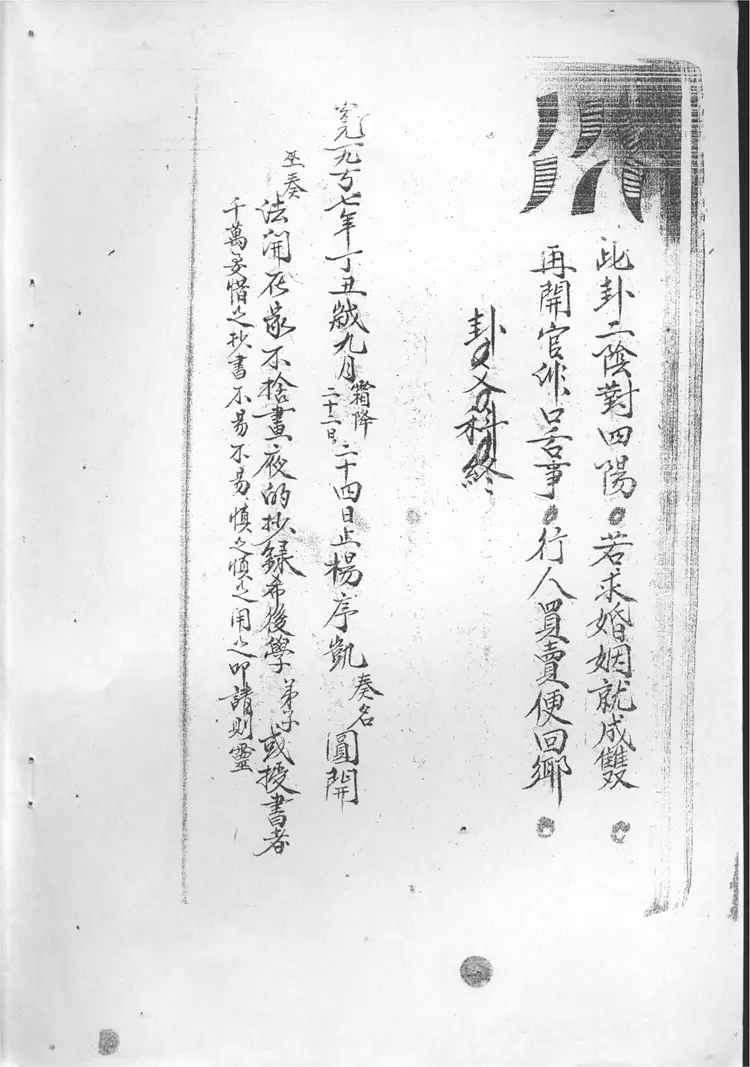 此卦二陰對四陽。若求婚姻就成雙
再開官非口舌事。行人買賣便回鄉
卦爻科終
一九九七年丁丑歲九月霜降二十二日二十四日止楊序凱奏名圓開
巫奏法開
不捨晝夜的抄錄希後學弟子或授書者
千萬妥惜之抄書不易不易慎之慎之用之叩請則靈